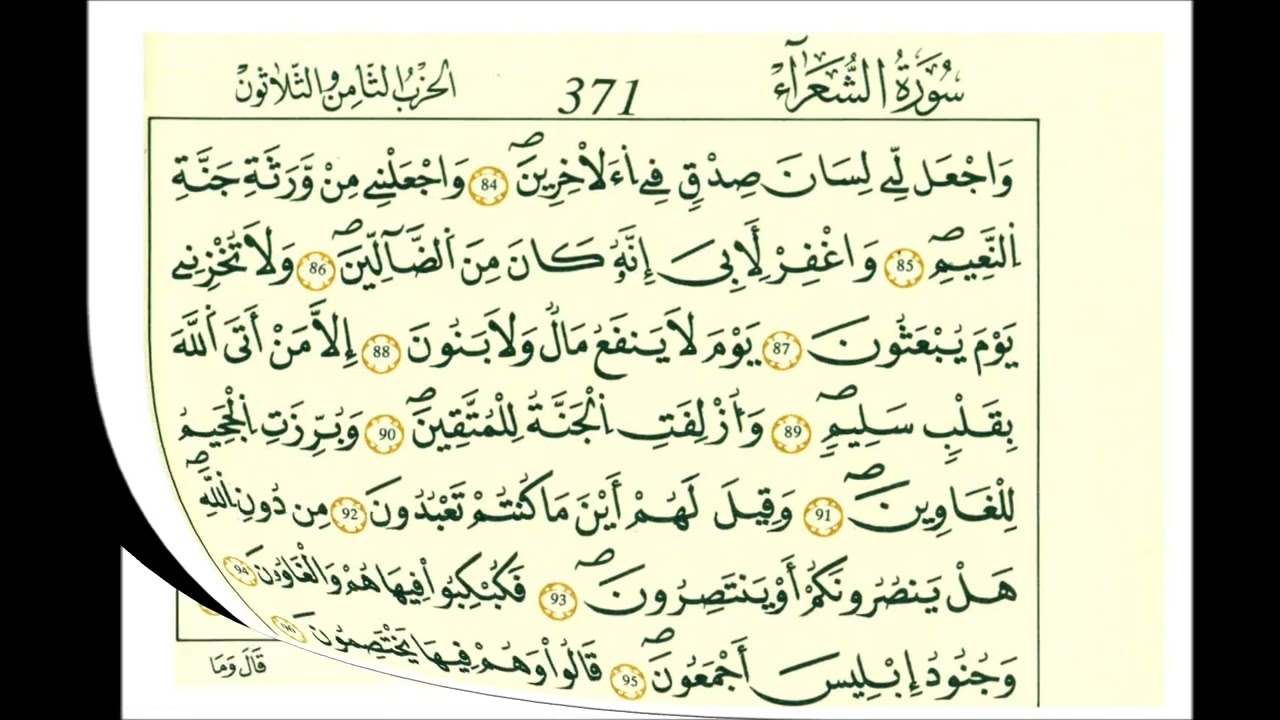 سُورَةُ الشُّعَرَآءِ 371 الحِزْبُ الثَّامِنُ وَالثَّلَاثُونَ
وَاجْعَل لِّے لِسَانَ صِدْقٍ فِے اِ۬ءَلَاخِرِينَۖ 84 وَاجْعَلْنِے مِنْ وَّرَثَةِ جَنَّةِ
اِ۬لنَّعِيمِۖ 85 وَاغْفِرْ لِأَبِيَ إِنَّهُۥ كَانَ مِنَ اَ۬لضَّآلِّينَۖ 86 وَلَا تُخْزِنِے
يَوْمَ يُبْعَثُونَ 87 يَوْمَ لَا يَنفَعُ مَالٌ وَلَا بَنُونَ 88 إِلَّا مَنْ أَتَى اَ۬للَّهَ
بِقَلْبٍ سَلِيمٍۖ 89 وَأُزْلِفَتِ اِ۬لْجَنَّةُ لِلْمُتَّقِينَۖ 90 وَبُرِّزَتِ اِ۬لْجَحِيمُ
لِلْغَاوِينَۖ 91 وَقِيلَ لَهُمْ أَيْنَ مَا كُنتُمْ تَعْبُدُونَ 92 مِن دُونِ اِ۬للَّهِۖ
هَلْ يَنصُرُونَكُمْ أَوْ يَنتَصِرُونَۖ 93 فَكُبْكِبُواْ فِيهَا هُمْ وَالْغَاوُۥنَ 94
وَجُنُودُ إِبْلِيسَ أَجْمَعُونَۖ 95 قَالُواْ وَهُمْ فِيهَا يَخْتَصِمُونَ 96
قَالَ وَمَا